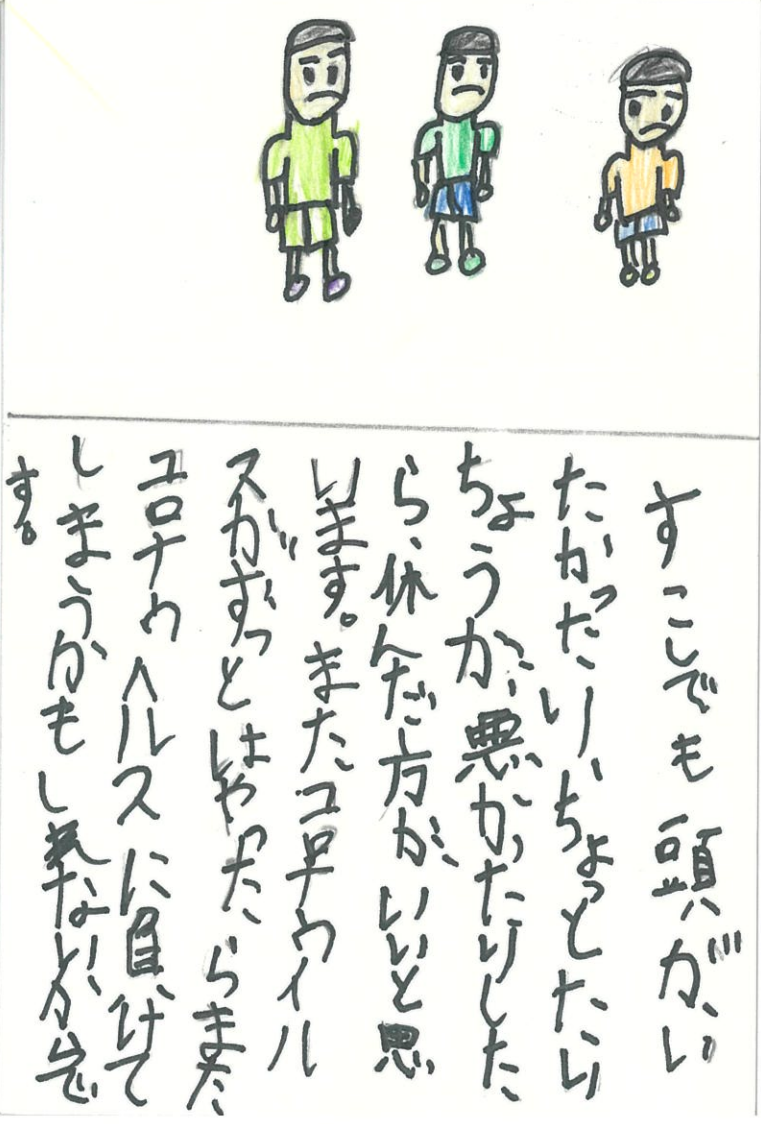 すこしでも頭がい
たかったり、ちょっとたい
ちょうが、悪かったりした
ら、休んだ方がいいと思
います。またコロナウイル
スがずっとはやったらまた
コロナウヘルスに負けて
しまうかもしれないからで
す。